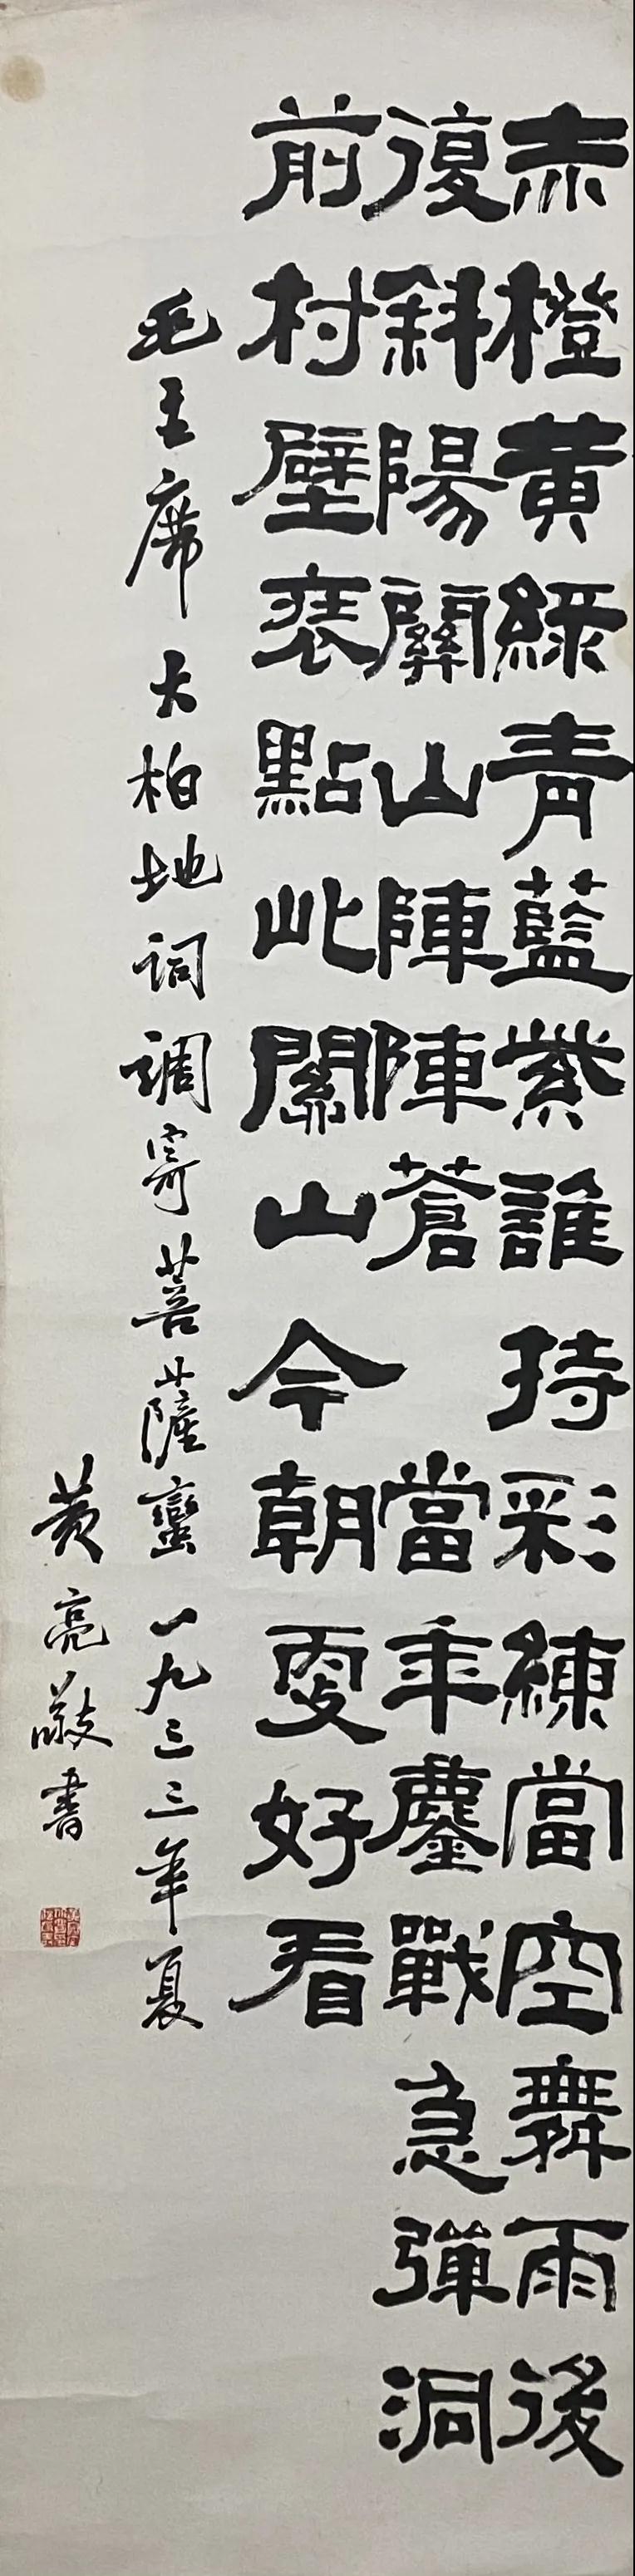 赤橙黄綠青藍紫誰持彩練當空舞雨後
復斜陽關山陣陣蒼 當年鏖戰急彈洞
前村壁裝點此關山今朝更好看
毛主席大柏地詞調寄菩薩蠻一九三三年夏
黄亮敬書